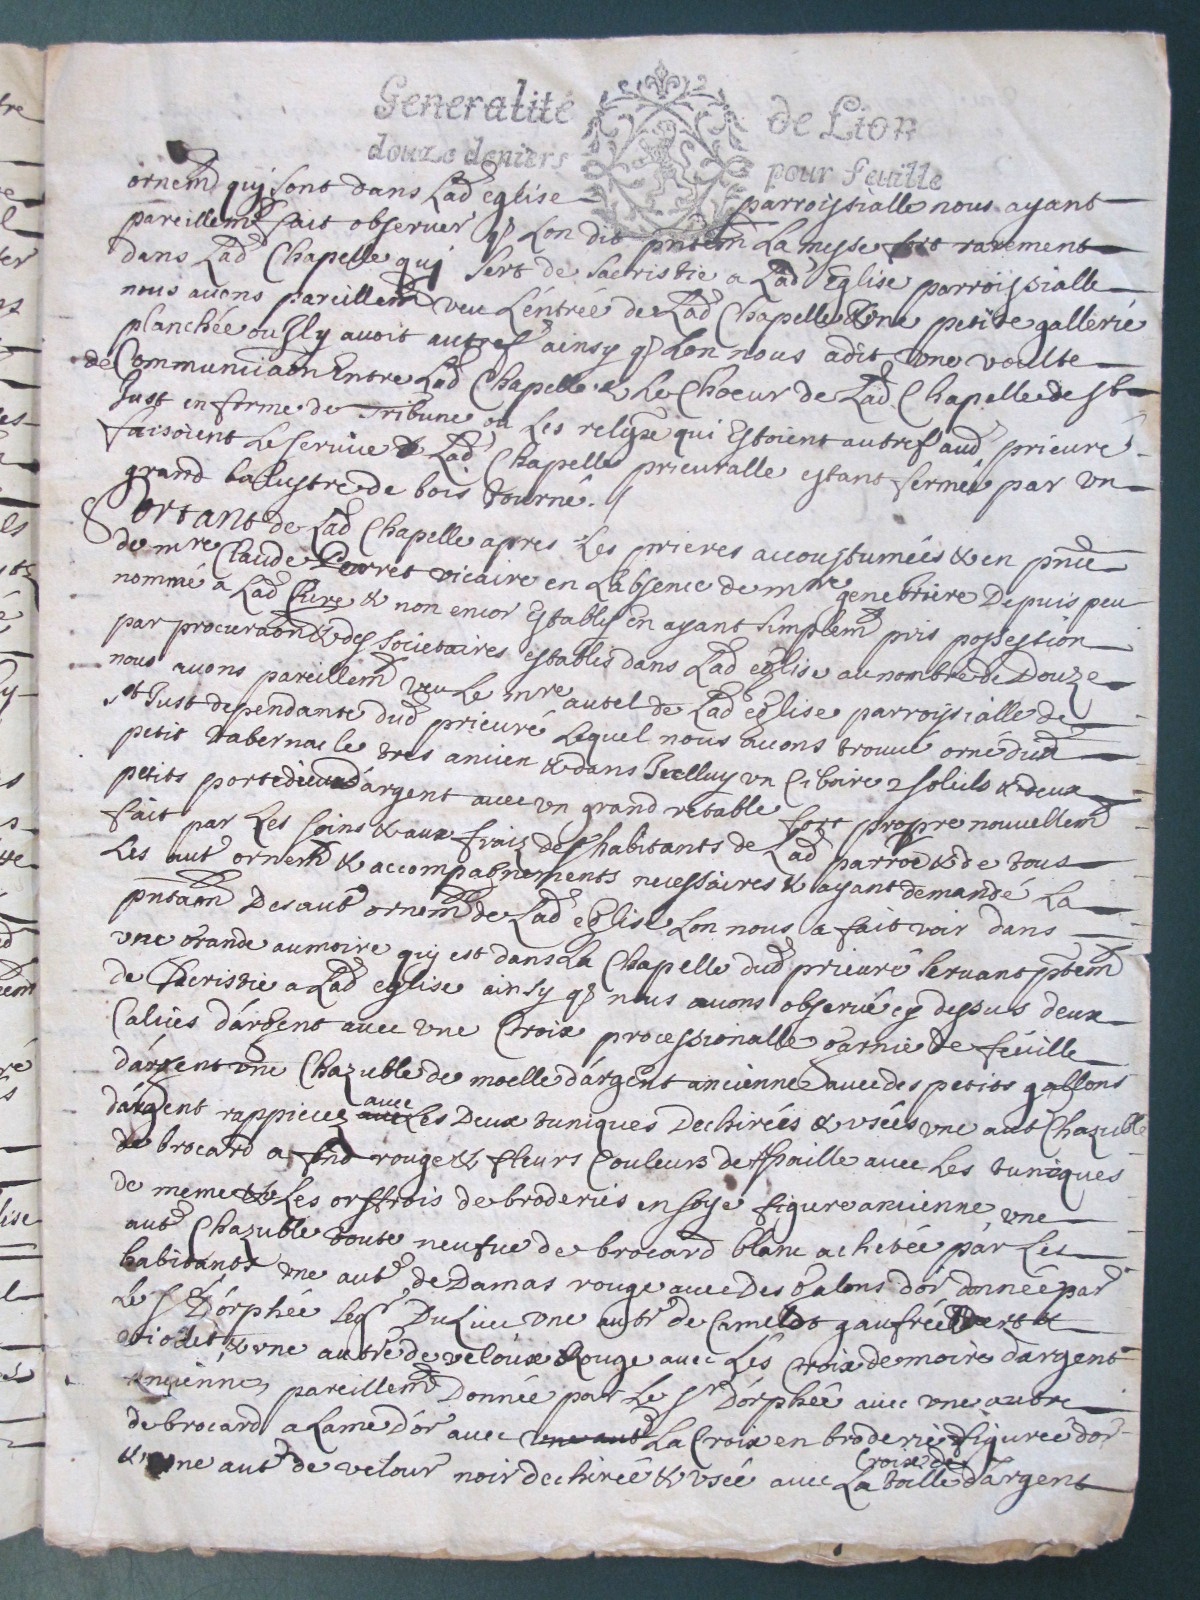 Generalité de Lion
douze deniers pour feuille
ornem quj sont dans Lad eglise parroissialle nous ayant
pareillem fait observer q Lon dit pntem La messe fort rarement
dans Lad Chapelle quj sert de sacristie a Lad Eglise parroissialle
nous avons pareillem veu Léntrée de Lad Chapelle & une petite gallerie
planchée ou Jly avoit autref ainsy q Lon nous adit une voulte
de Communicaon Entre Lad Chapelle & Le Choeur de Lad Chapelle de st
Just en forme de Tribune ou Les religx qui Estoient autref aud prieuré
faisoient Le service & Lad Chapelle prieuralle estant fermée par un
grand balustre de bois tourné.
Sortant de Lad Chapelle apres Les prieres accoustumées & en pnce
de mre Claude Perret vicaire en Labsence de mre genebriere Depuis peu
nommé a Lad Cure & non encor Establj En ayant simplem pris possession
par procuraon & des societaires establis dans Lad eglise au nombre de Douze
nous avons pareillem veu Le mre autel de Lad eglise parroissialle de
st Just dependante dud prieuré Lequel nous avons trouvé orné dun
petit tabernacle tres ancien & dans Jcelluy un Ciboire 2 soleils & deux
petits portedieux d'argent avec un grand retable fort propre nouvellem
fait par Les soins & aux fraiz des habitants de Lad parroe & de tous
Les aut ornem & accompagnements necessaires & ayant demandé La
pntaon Des aut ornem de Lad eglise Lon nous a fait voir dans
une grande aumoire quj est dans La Chapelle dud prieuré servant pntem
de Sacristie a Lad eglise ainsy q nous avons observé cy dessus deux
Calices d'argent avec une Croix processionalle garnie de feuille
d'argent une Chazuble de moelle d'argent ancienne avec des petits gallons
d'argent rappiecez avec Les Deux tuniques Dechirées & usées une aut Chazuble
de brocard a fnd rouge & fleurs Couleurs de paille avec Les tuniques
de meme & Les orffrois de broderies en soye figure ancienne, une
aut Chazuble toute neufve de brocard blanc achetée par Les
habitants une aut de Damas rouge avec Des galons d'or donnée par
Le sr D'orphée segr Du Luc une autr de Camelot gaufrée vert &
violet & une autre de veloux Rouge avec Les Croix de moire d'argent
ancienne, pareillem Donnée par Le sr D'orphée avec une autre
de brocard a Lame D'or avec une aut La Croix en broderie figurée d'or
& une aut de velour noir dechirée & usée avec La Croix de toille d'argent